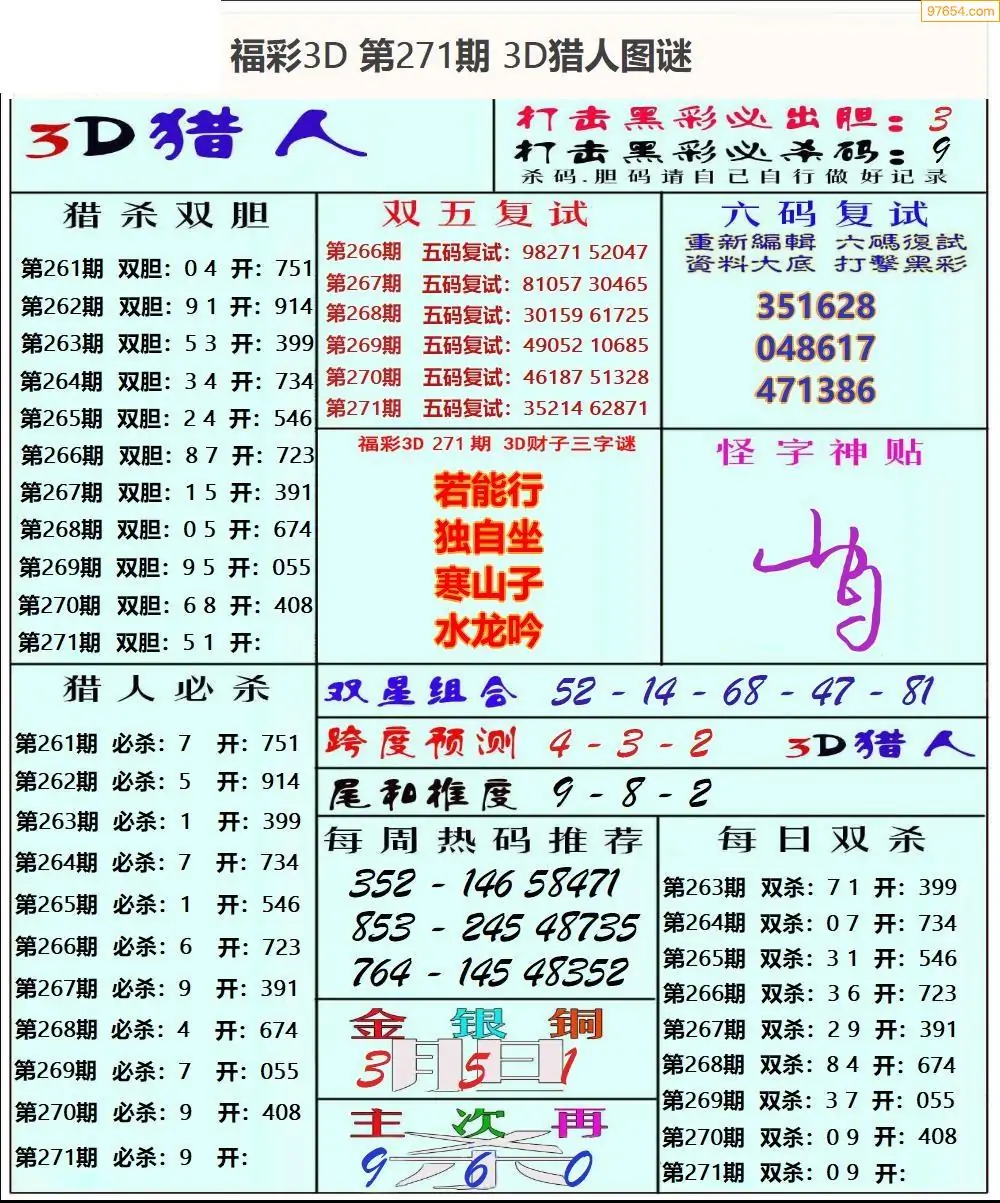 97654.com
福彩3D 第271期 3D猎人图谜
3D猎人
打击黑彩必出胆：3
打击黑彩必杀码：9
杀码.胆码请自己自行做好记录
猎杀双胆
第261期 双胆：0 4 开：751
第262期 双胆：9 1 开：914
第263期 双胆：5 3 开：399
第264期 双胆：3 4 开：734
第265期 双胆：2 4 开：546
第266期 双胆：8 7 开：723
第267期 双胆：1 5 开：391
第268期 双胆：0 5 开：674
第269期 双胆：9 5 开：055
第270期 双胆：6 8 开：408
第271期 双胆：5 1 开：
双五复试
第266期 五码复试：98271 52047
第267期 五码复试：81057 30465
第268期 五码复试：30159 61725
第269期 五码复试：49052 10685
第270期 五码复试：46187 51328
第271期 五码复试：35214 62871
六码复试
重新編輯 六碼復試
資料大底 打擊黑彩
351628
048617
471386
福彩3D 271期 3D财子三字谜
若能行
独自坐
寒山子
水龙吟
怪字神贴
猎人必杀
第261期 必杀：7 开：751
第262期 必杀：5 开：914
第263期 必杀：1 开：399
第264期 必杀：7 开：734
第265期 必杀：1 开：546
第266期 必杀：6 开：723
第267期 必杀：9 开：391
第268期 必杀：4 开：674
第269期 必杀：7 开：055
第270期 必杀：9 开：408
第271期 必杀：9 开：
双星组合 52 - 14 - 68 - 47 - 81
跨度预测 4 - 3 - 2 3D猎人
尾和推度 9 - 8 - 2
每周热码推荐
352 - 146 58471
853 - 245 48735
764 - 145 48352
金银铜
胆
3 5 1
主次再
杀
9 6 0
每日双杀
第263期 双杀：7 1 开：399
第264期 双杀：0 7 开：734
第265期 双杀：3 1 开：546
第266期 双杀：3 6 开：723
第267期 双杀：2 9 开：391
第268期 双杀：8 4 开：674
第269期 双杀：3 7 开：055
第270期 双杀：0 9 开：408
第271期 双杀：0 9 开：